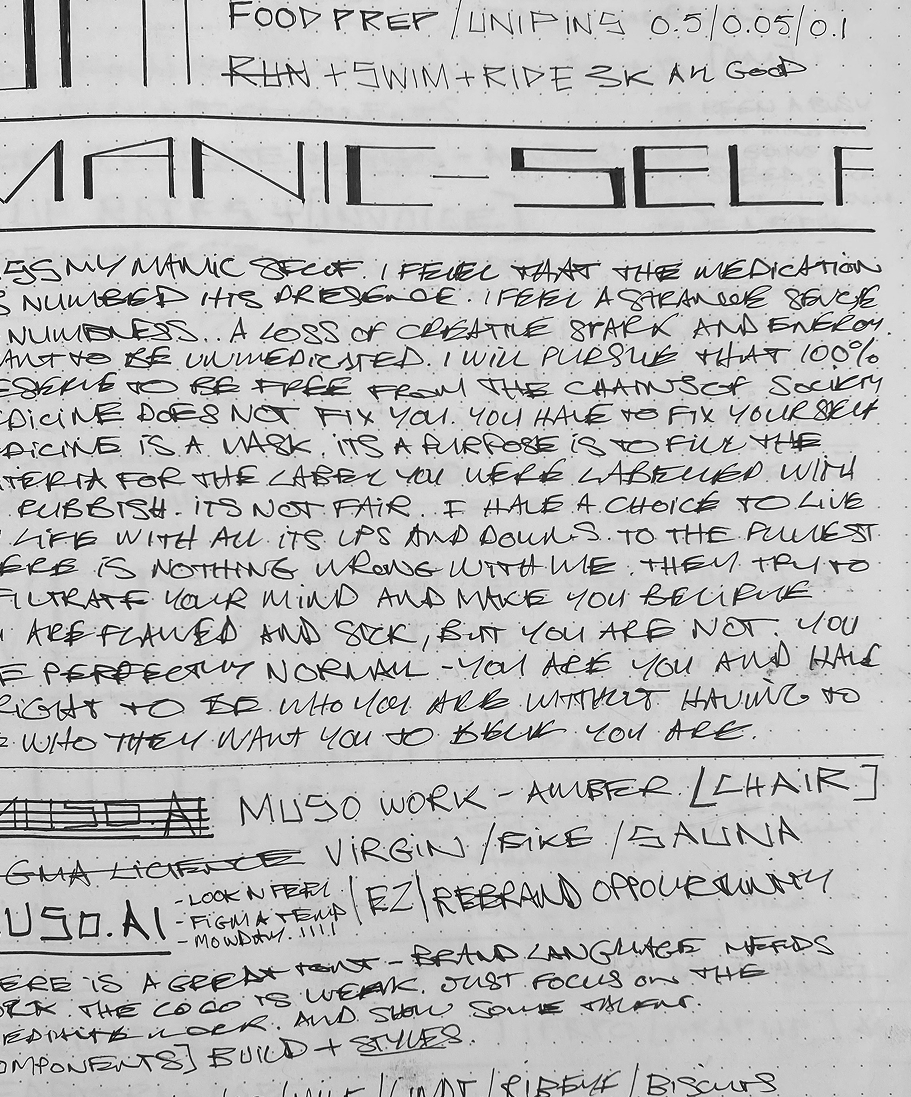 FOOD PREP / UNIPINS 0.5/0.05/0.1
RUN + SWIM + RIDE 3K All GooD
MANIC-SELF
MY MANIC SELF. I FEEL THAT THE MEDICATION
NUMBED HIS PRESENCE. I FEEL A STRANGE SENSE
NUMBNESS.. A LOSS OF CREATIVE SPARK AND ENERGY.
TO BE UNMEDICATED. I WILL PURSUE THAT 100%
TO BE FREE FROM THE CHAINS OF SOCIETY
DICINE DOES NOT FIX YOU. YOU HAVE TO FIX YOURSELF
DICINE IS A MASK. ITS A PURPOSE IS TO FILL THE
TERIA FOR THE LABEL YOU WERE LABELLED WITH
RUBBISH. ITS NOT FAIR. I HAVE A CHOICE TO LIVE
LIFE WITH ALL ITS UPS AND DOWNS. TO THE FULLEST
ERE IS NOTHING WRONG WITH ME. THEY TRY TO
FILTRATE YOUR MIND AND MAKE YOU BELIEVE
ARE FLAWED AND SICK, BUT YOU ARE NOT. YOU
PERFECTLY NORMAL - YOU ARE YOU AND HAVE
RIGHT TO BE WHO YOU ARE WITHOUT HAVING TO
WHO THEY WANT YOU TO YOU ARE.
MUSO.AI MUSO WORK - AMBER [CHAIR]
GMA LICIENCE VIRGIN / BIKE / SAUNA
USO.AI - LOOK N FEEL | EZ | REBRAND OPPOURTUNITY
- FIGMA TEMP
- MONDAY.!!!!
ERE IS A GREAT - BRAND LANGUAGE NEEDS
ORK. THE LOGO IS WEAK. JUST FOCUS ON THE
AND SHOW SOME TALENT
OMPONENTS] BUILD + STYLES.
/ RIBEYE / BISCUITS